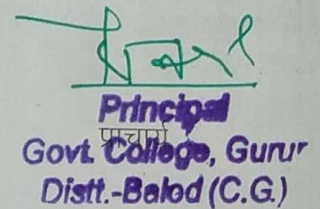 Principal
प्राचार्य
Govt. College, Gurur
Distt.-Balod (C.G.)